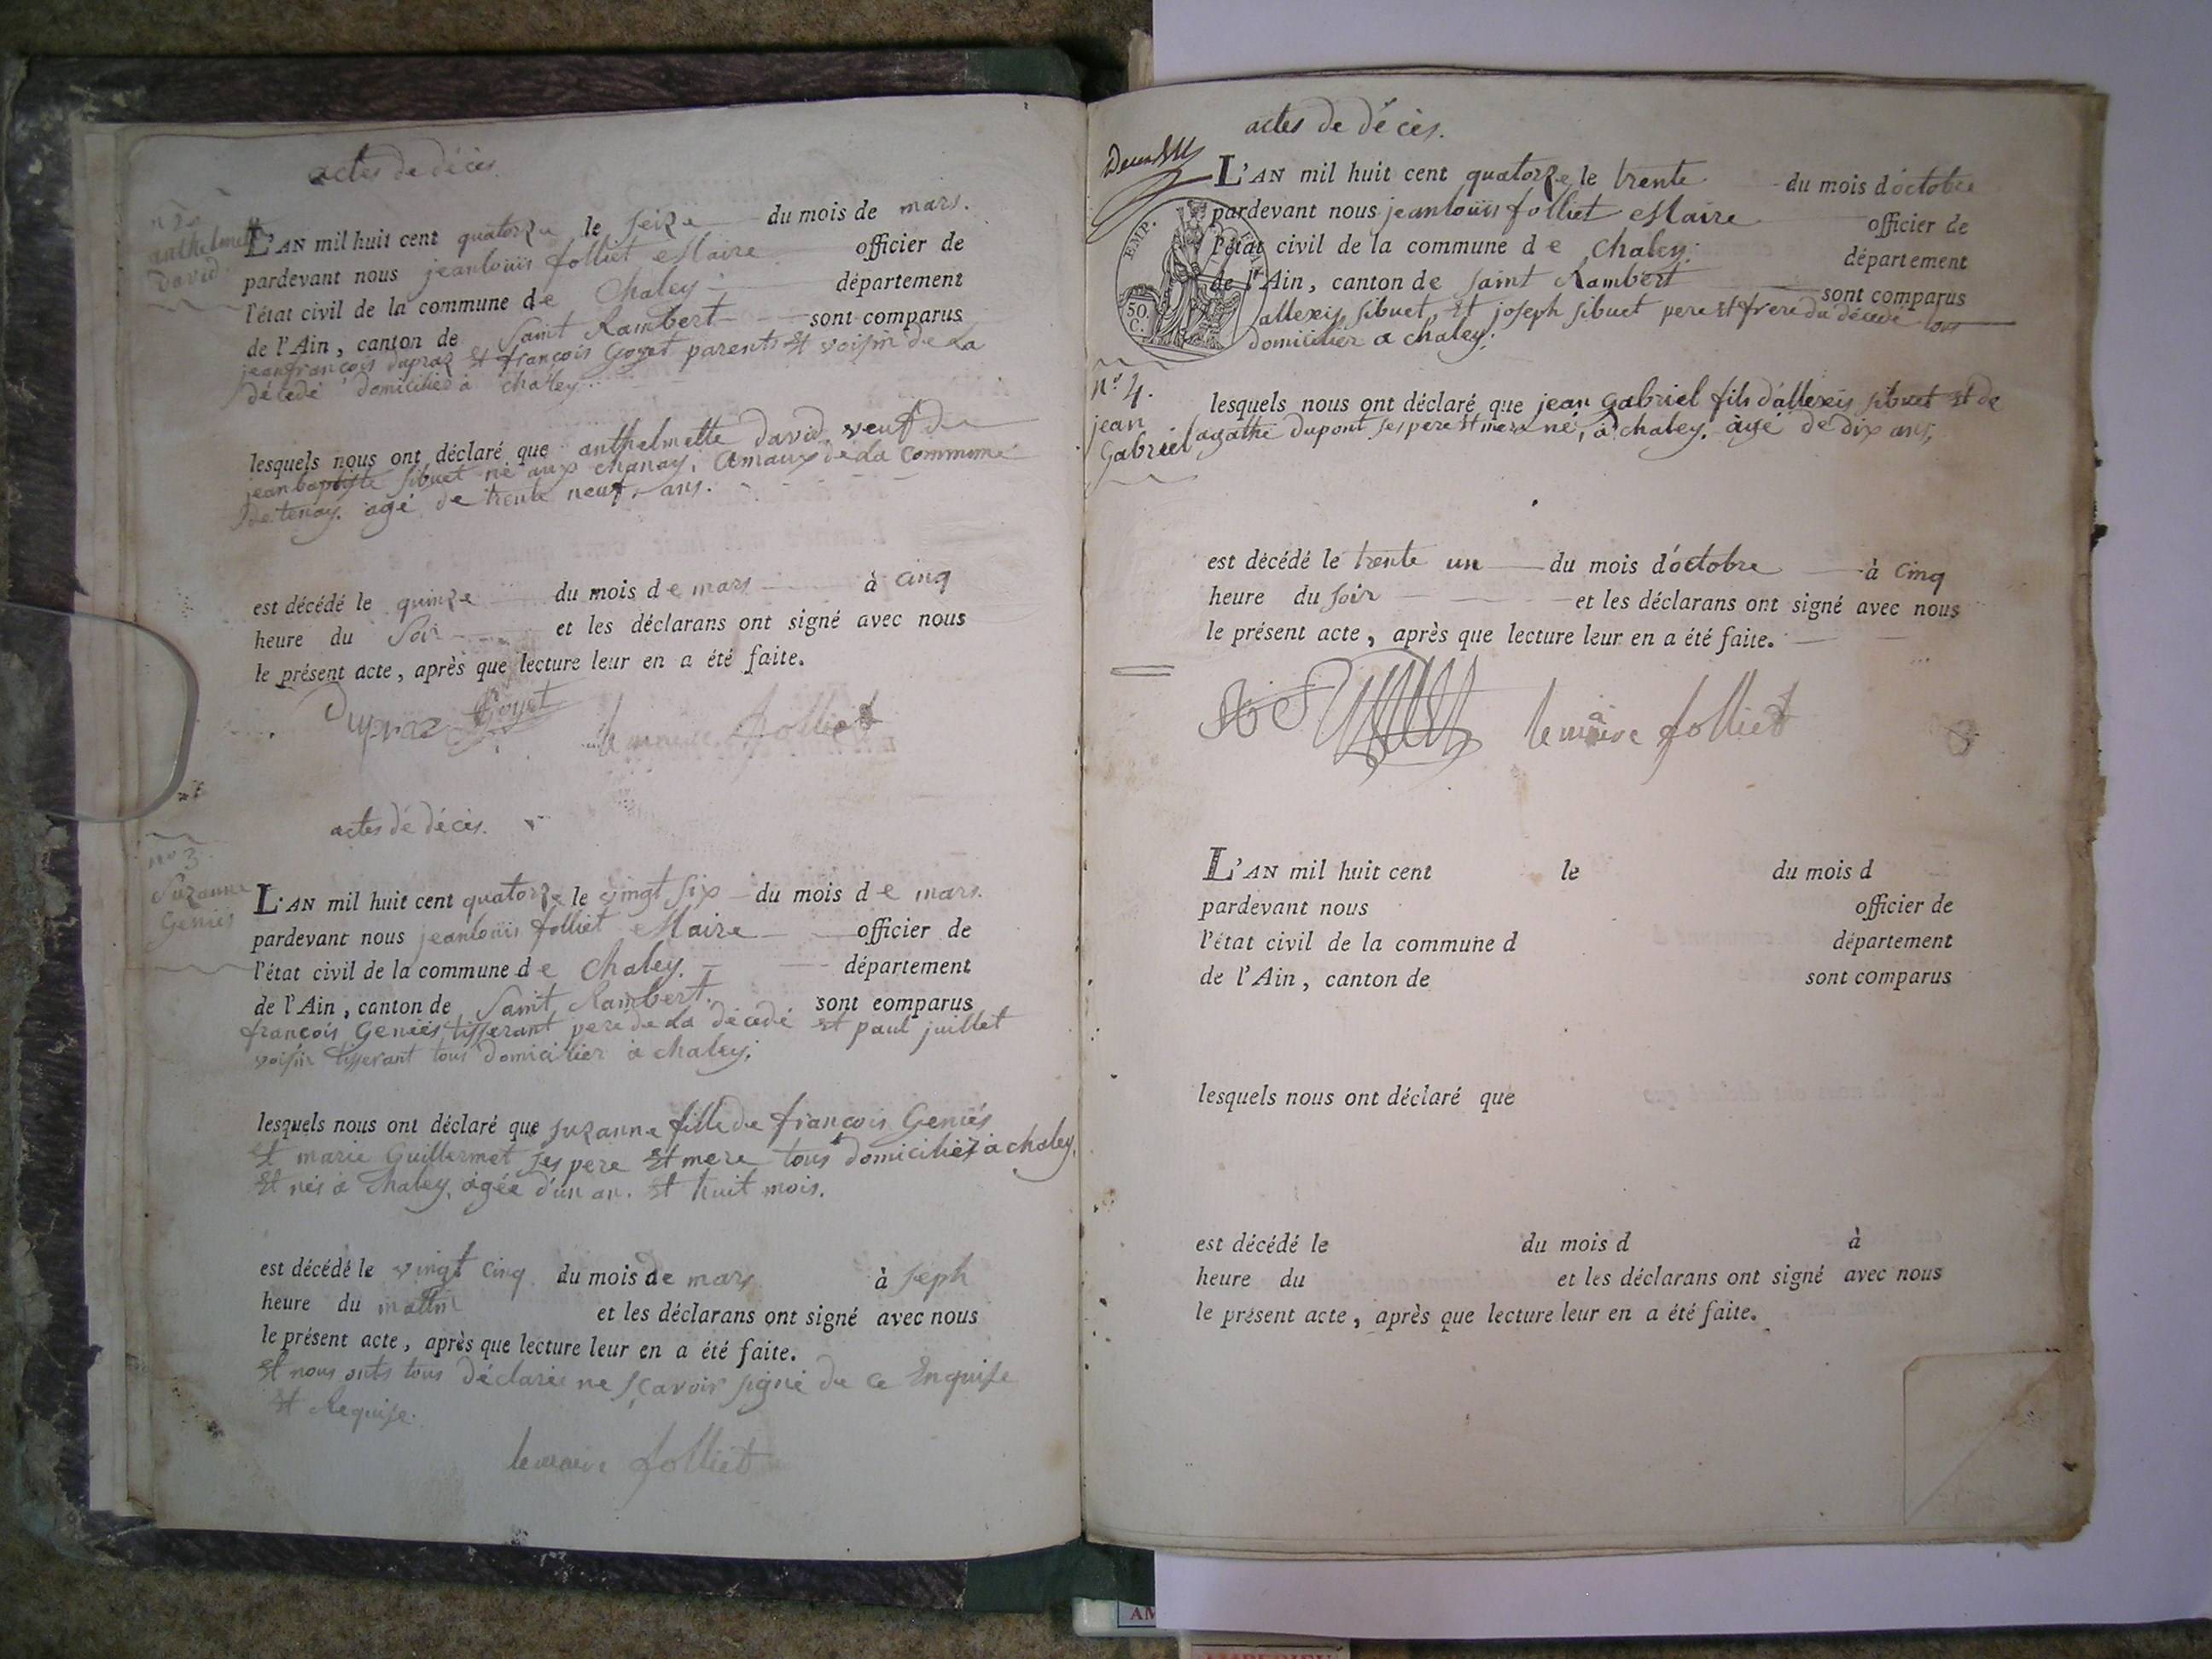 actes de décès.
n° 2
anthelmette
david
L'AN mil huit cent quatorze le seize du mois de mars.
pardevant nous jeanlouïs folliet Maire officier de
l'état civil de la commune de Chaley département
de l'Ain, canton de Saint Rambert sont comparus
jeanfrançois dupraz et françois Goyet parents et voisin de La
décédé domiciliés à chaley
lesquels nous ont déclaré que anthelmette david, veuf de
jeanbaptiste sibuet né aux chanay, de la commune
de tenay. agé de trente neuf ans.
est décédé le quinze du mois de mars à cinq
heure du Soir et les déclarans ont signé avec nous
le présent acte, après que lecture leur en a été faite.
Dupraz Goyet le maire folliet
actes dé décès.
n° 3.
Suzanne
Geniés
L'AN mil huit cent quatorze le vingt six du mois de mars.
pardevant nous jeanlouïs folliet Maire officier de
l'état civil de la commune de Chaley. département
de l'Ain, canton de Saint Rambert. sont comparus
françois Geniés tisserant pere de La décedé et paul juillet
voisin tisserant tous domicilier à chaley.
lesquels nous ont déclaré que suzanne fille de françois Geniés
et marie Guillermet ses pere et mere tous domiciliéz à chaley.
et nés à Chaley, agée d'un an. et huit mois.
est décédé le vingt cinq du mois de mars à seph
heure du matin et les déclarans ont signé avec nous
le présent acte, après que lecture leur en a été faite.
et nous onts tous déclaréé ne sçavoir signé de ce Enquise
et Requise.
le maire folliet
actes de décès.
L'AN mil huit cent quatorze le trente du mois d'octobre
pardevant nous jeanlouïs folliet Maire officier de
l'état civil de la commune de Chaley. département
de l'Ain, canton de Saint Rambert sont comparus
allexis sibuet et joseph sibuet pere et frere du décedé tous
domicilier a chaley.
EMP.
50.
C.
n° 4.
jean
Gabriel
lesquels nous ont déclaré que jean Gabriel fils d'allexis sibuet et de
agathe dupont ses pere et mere né, à chaley. âgé de dix ans,
est décédé le trente un du mois d'octobre à cinq
heure du soir et les déclarans ont signé avec nous
le présent acte, après que lecture leur en a été faite.
le maire folliet
L'AN mil huit cent le du mois d
pardevant nous officier de
l'état civil de la commune d département
de l'Ain, canton de sont comparus
lesquels nous ont déclaré que
est décédé le du mois d à
heure du et les déclarans ont signé avec nous
le présent acte, après que lecture leur en a été faite.